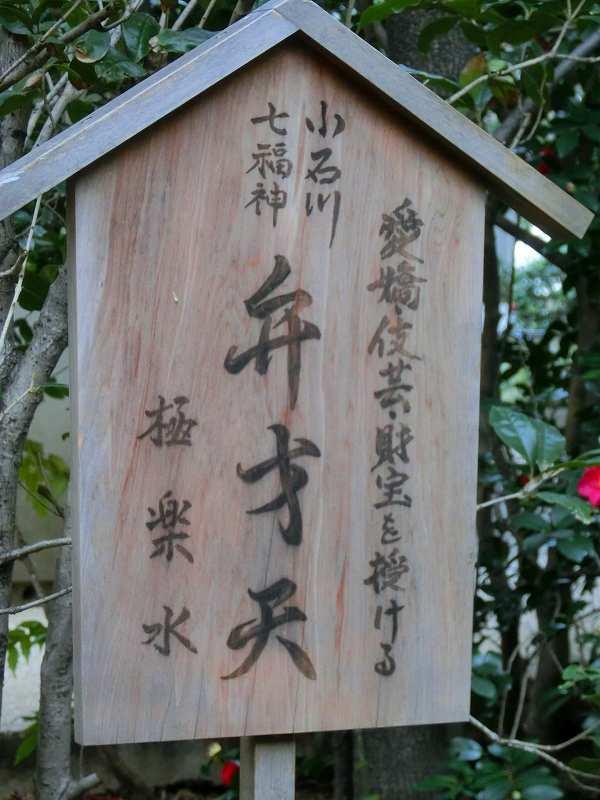 愛嬌・伎芸・財宝を授ける
小石川
七福神
弁才天
極楽水